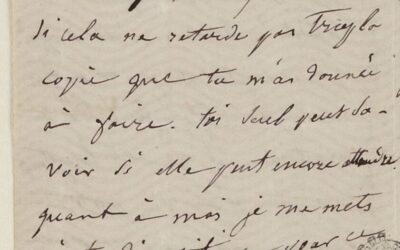 si cela ne retarde pas trop la
copie que tu m'as donnée
à faire. toi seul peut sa-
voir si elle peut encore attendre.
quant à moi je me mets